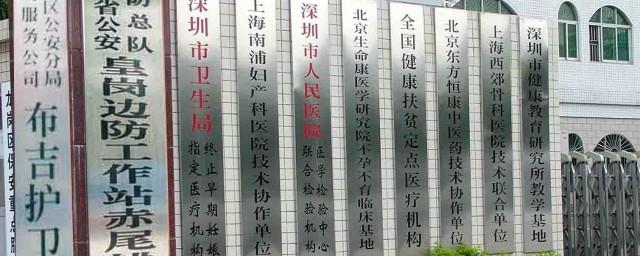 龙岗区保安重点
区公安分局
服务公司
布吉护卫
防总队
省公安
皇岗边防工作站赤尾
深圳市卫生局
终止早期妊娠
指定医疗机构
上海南浦妇产科医院技术协作单位
深圳市人民医院
医学检验中心
联合检验机构
北京生命康医学研究院不孕不育临床基地
全国健康扶贫定点医疗机构
北京东方恒康中医药技术协作单位
上海西郊骨科医院技术联合单位
深圳市健康教育研究所教学基地